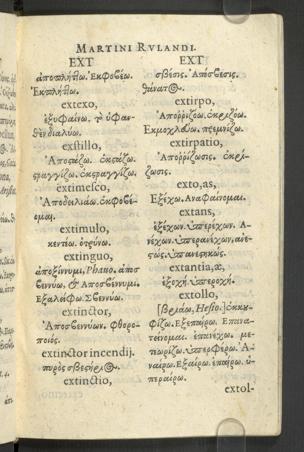 MARTINI RVLANDI.
EXT
ἀποπλήθω. Ἐκφοβέω.
Ἐκπλήθω.
extexo,
ἐξυφαίνω, τὸ ὑφαν-
θὲν διαλύω.
exstillo,
Ἀποστάζω. ἐκστάζω.
στραγγίζω. ἐκστραγγίζω.
extimesco,
Ἀποδειλιάω. ἐκφοβέ-
ομαι.
extimulo,
κεντέω. ὀτρύνω.
extinguo,
ἀποζίννυμι, Phauo. ἀποσ
βεννύω, & Ἀποσβέννυμι.
Ἐξαλείφω. Σβεννύω.
extinctor,
Ἀποσβεννύων. φθορο-
ποιός.
extinctor incendij.
πυρὸς σβεστήρι@.
extinctio,
EXT
σβέσις. Ἀπόσβεσις.
θάνατ@.
extirpo,
Ἀποῤῥιζόω. ἐκριζόω.
Ἐκμοχλεύω. πρεμνίζω.
extirpatio,
Ἀποῤῥίζωσις. ἐκρί-
ζωσις.
exto, as,
Ἐξέχω. Ἀναφαίνομαι.
extans,
ἐξέχων. ὑπερέχων. Ἀ-
νέχων. ὑπερανέχων. ἀνε-
στώς. ὑπανεστηκώς.
extantia, æ,
ἐξοχή. ὑπεροχή.
extollo,
[βριάω, Hesio.] ἐκκυ-
φίζω. Ἐξεπαίρω. Ἐπανα-
τείνομαι. ἐπανέχω. με-
τεωρίζω. ὑπερφέρω. Ἀ-
ναίρω. Ἐξαίρω. ἐπαίρω. ὑ-
περαίρω.
extol-